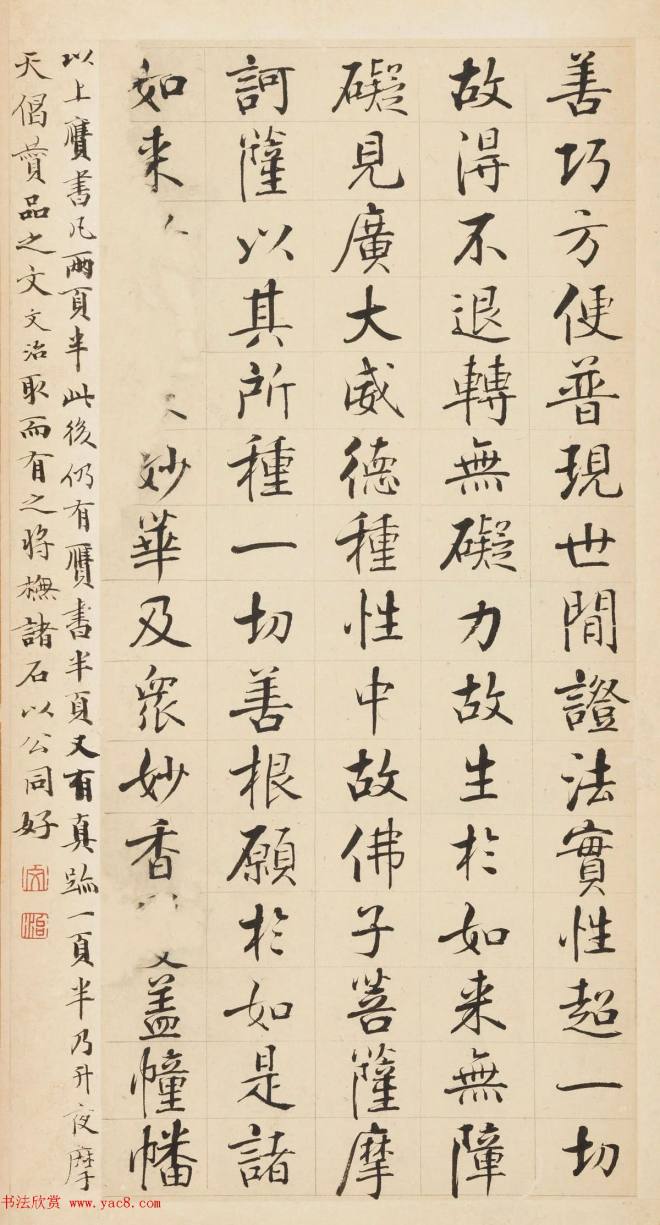 善巧方便普現世間證法實性超一切
故得不退轉無礙力故生於如来無障
礙見廣大威德種性中故佛子菩薩摩
訶薩以其所種一切善根願於如是諸
如来妙華及衆妙香蓋幢幡
以上贗書凡兩頁半此後仍有贗書半頁又有真跡一頁半乃升夜摩
天偈贊品之文文治取而有之将橅諸石以公同好
文
治
书法欣赏 www.yac8.com